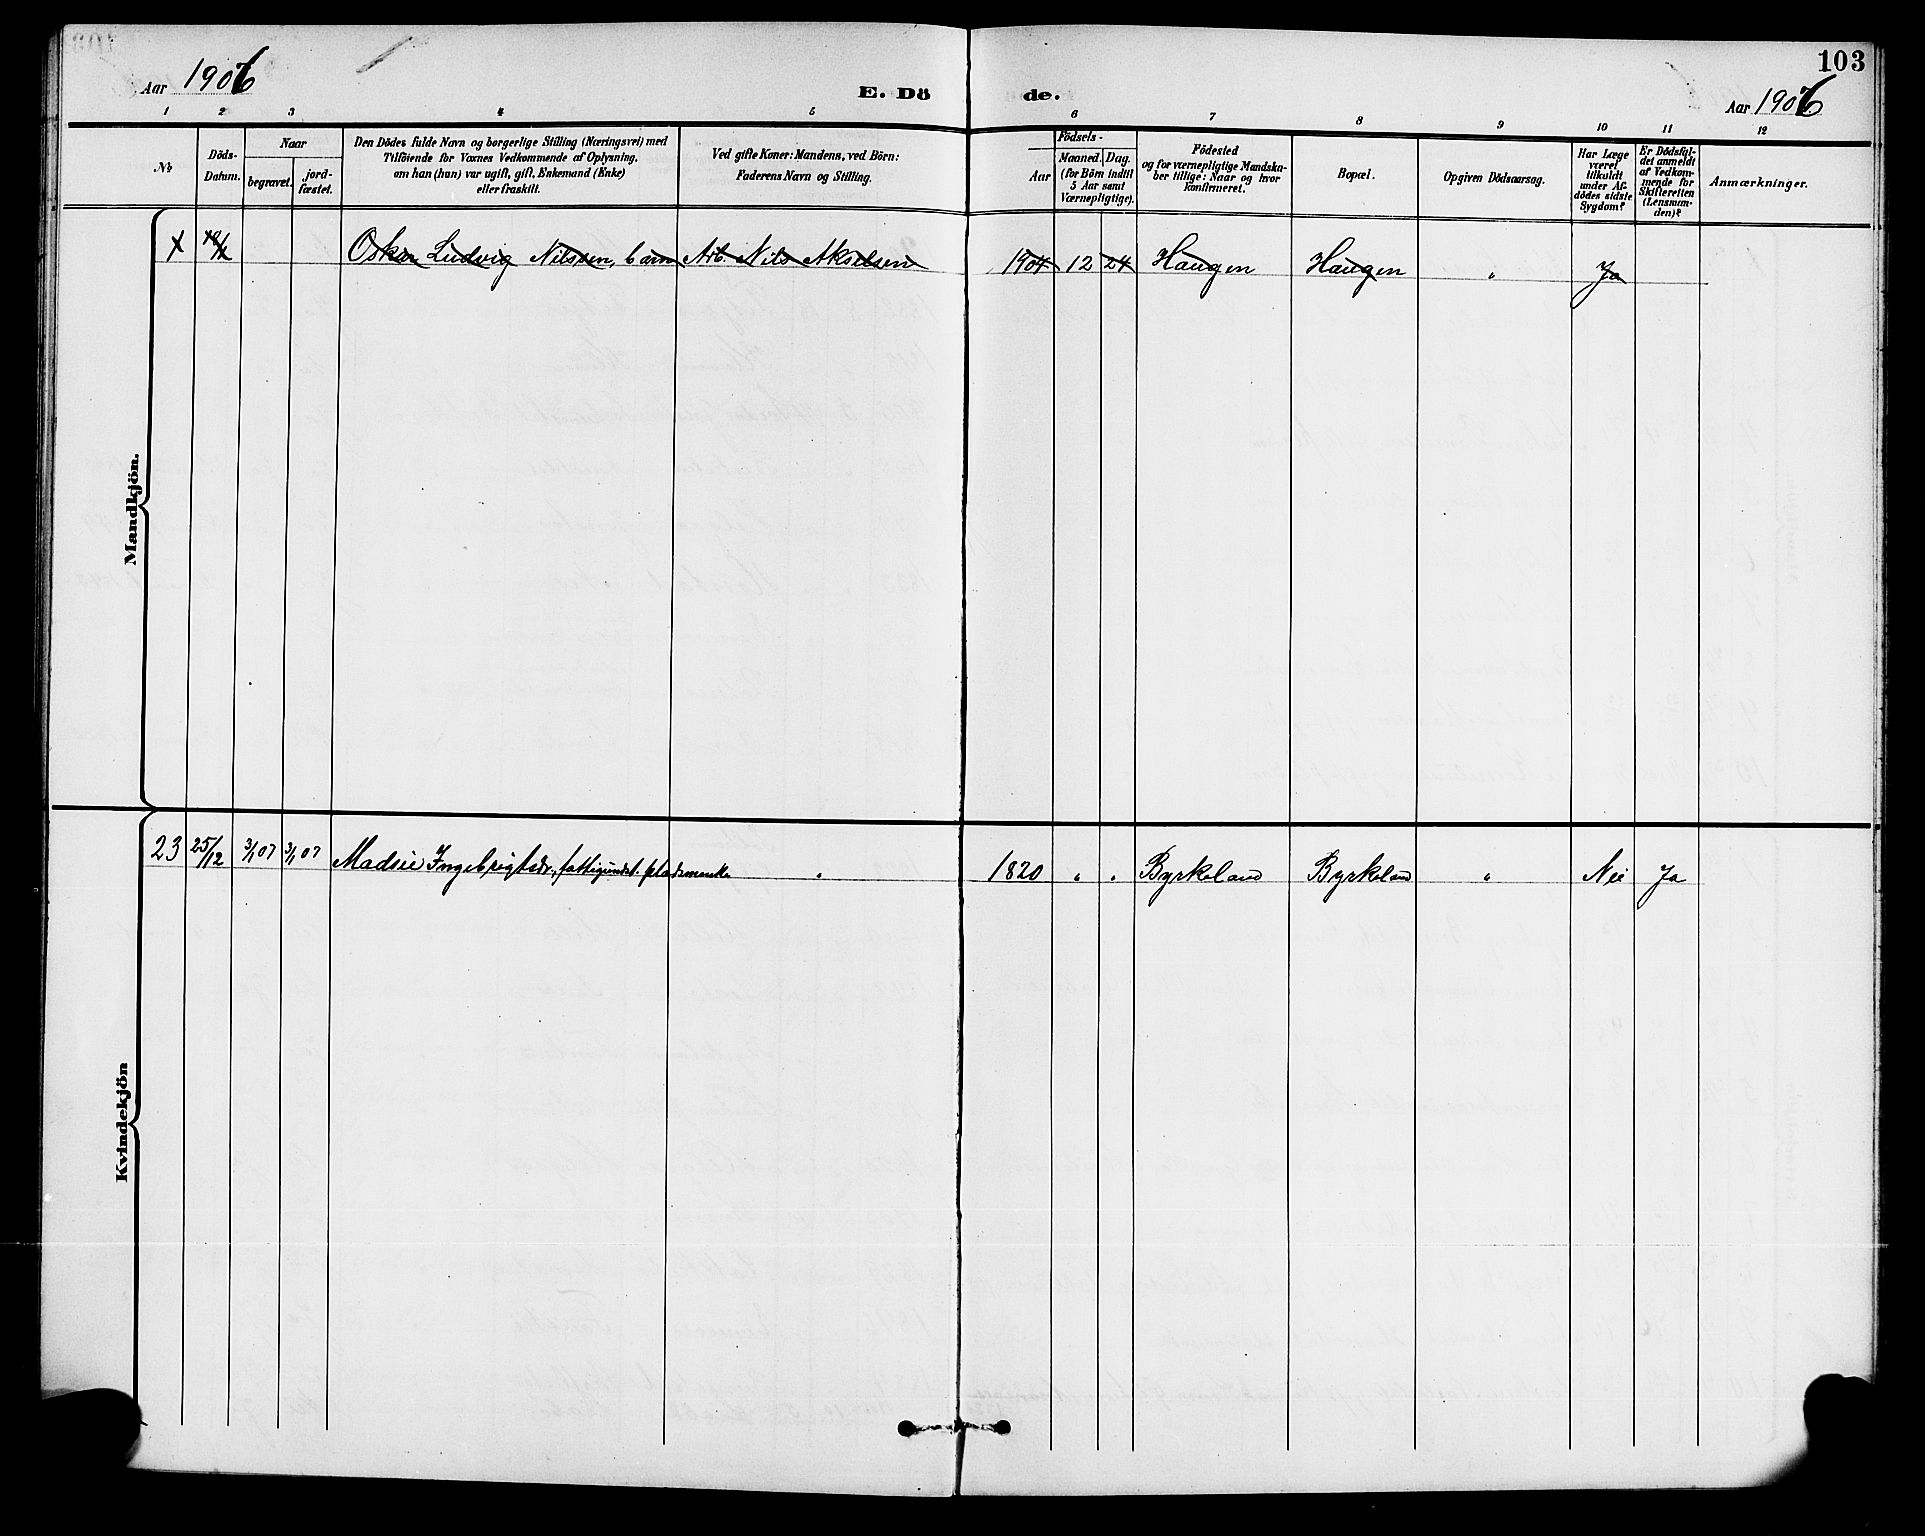 103
Aar 1906
E. Dö de.
Aar 1906
1 2 3 4 5 6 7 8 9 10 11 12
No
Döds-
Datum.
Naar
begravet.
jord-
fæstet.
Den Dödes fulde Navn og borgerlige Stilling (Næringsvei) med
Tilföiende for Voxnes Vedkommende af Oplysning,
om han (hun) var ugift, gift, Enkemand (Enke)
eller fraskilt.
Ved gifte Koner: Mandens, ved Börn:
Faderens Navn og Stilling.
Födsels-
Aar
Maaned. Dag.
(for Börn indtil
5 Aar samt
Værnepligtige).
Födested
og for værnepligtige Mandska-
ber tillige: Naar og hvor
konfirmeret.
Bopæl.
Opgiven Dödsaarsag.
Har Læge
været
tilkaldt
under Af-
dödes sidste
Sygdom?
Er Dödsfal-
det anmeldt
af Vedkom-
mende for
Skifteretten
(Lensman-
den)?
Anmærkninger.
Mandkjön.
1 Oskar Ludvig Nilssen, barn Arb. Nils Akselsen 1904 12 24 Haugen Haugen " Ja
Kvindekjön
23 25/12 3/1 07 3/1 07 Madsie Ingebrigtsdr., fattigundst. pladsmenke " 1820 " " Byrkeland Byrkeland " Nei Ja